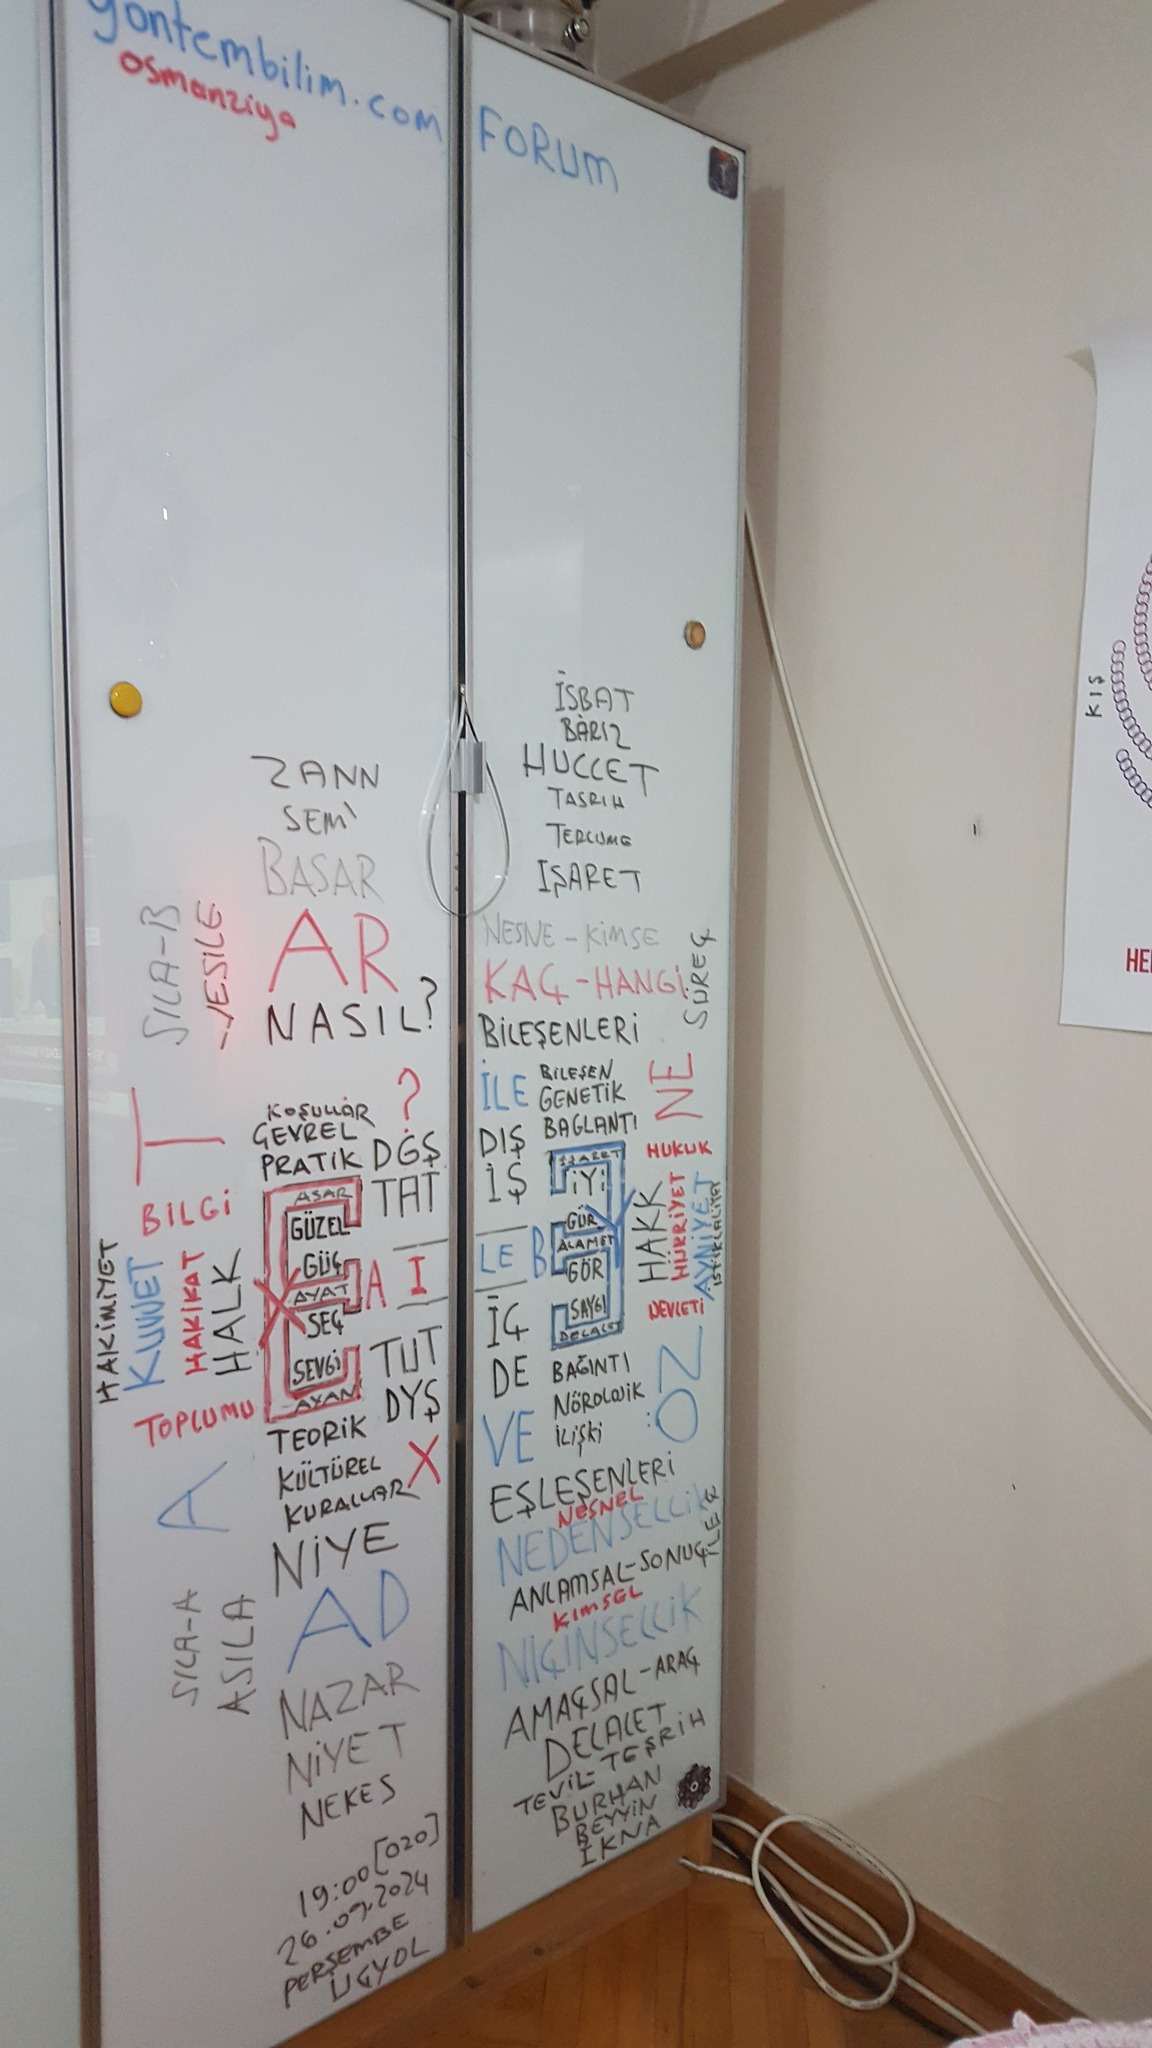 yontembilim.com
osmanziya
FORUM
ZANN
SEMİ
BASAR
AR
NASIL?
SILA-B
VESILE
T
BİLGİ
HAKİMİYET
KUVVET
HAKİKAT
HALK
TOPLUMU
A
SILA-A
ASILA
KOŞULLAR
ÇEVREL
PRATİK
?
DĞŞ
TAT
ASAR
GÜZEL
GÜÇ
AYAT
SEÇ
SEVGİ
AYAN
A I
TUT
DYŞ
X
TEORİK
KÜLTÜREL
KURALLAR
NİYE
AD
NAZAR
NİYET
NEKES
19:00 [020]
26.09.2024
PERŞEMBE
ÜÇYOL
İSBAT
BARIZ
HUCCET
TASRIH
TERCUME
IŞARET
NESNE-KİMSE
KAÇ-HANGİ
SÜREÇ
BİLEŞENLERİ
İLE
BILEŞEN
GENETİK
BAĞLANTI
NE
DIŞ
İŞ
HUKUK
IŞARET
İYİ
GÜR
ALAMET
GÖR
SAYGI
DELALET
LE B
HAKK
HÜRRİYET
AYNİYET
İSTİKLALİYET
DEVLETİ
İÇ
DE
VE
BAĞINTI
NÖROLOJİK
İLİŞKİ
ÖZ
EŞLEŞENLERİ
NESNEL
NEDENSELLİK
ANLAMSAL-SONUÇ
KIMSEL
NİÇİNSELLİK
AMAÇSAL-ARAÇ
DELALET
TEVİL-TEŞRİH
BURHAN
BEYYİN
İKNA
KIŞ
HE